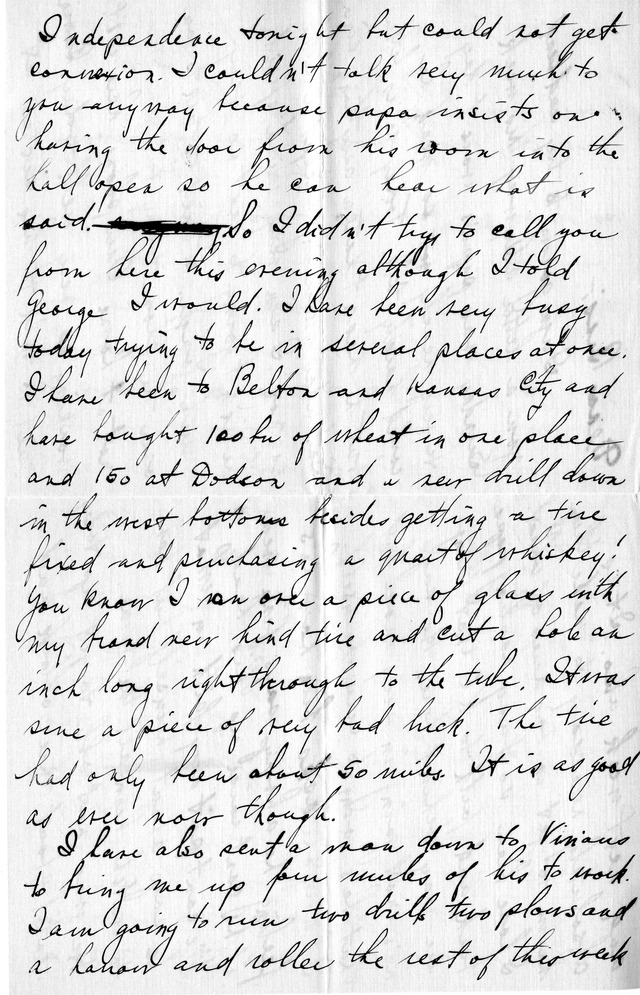 Independence tonight but could not get
connexion. I couldn't talk very much to
you anyway because papa insists on
having the door from his room into the
hall open so he can hear what is
said. So I didn't try to call you
from here this evening although I told
George I would. I have been very busy
today trying to be in several places at once.
I have been to Belton and Kansas City and
have bought 100 bu of wheat in one place
and 150 at Dodson and a new drill down
in the west bottoms besides getting a tire
fixed and purchasing a quart of whiskey!
You know I ran over a piece of glass with
my brand new hind tire and cut a hole an
inch long right through to the tube. It was
sure a piece of very bad luck. The tire
had only been about 50 miles. It is as good
as ever now though.
I have also sent a man down to Vivians
to bring me up four mules of his to work.
I am going to run two drills two plows and
a harrow and roller the rest of this week